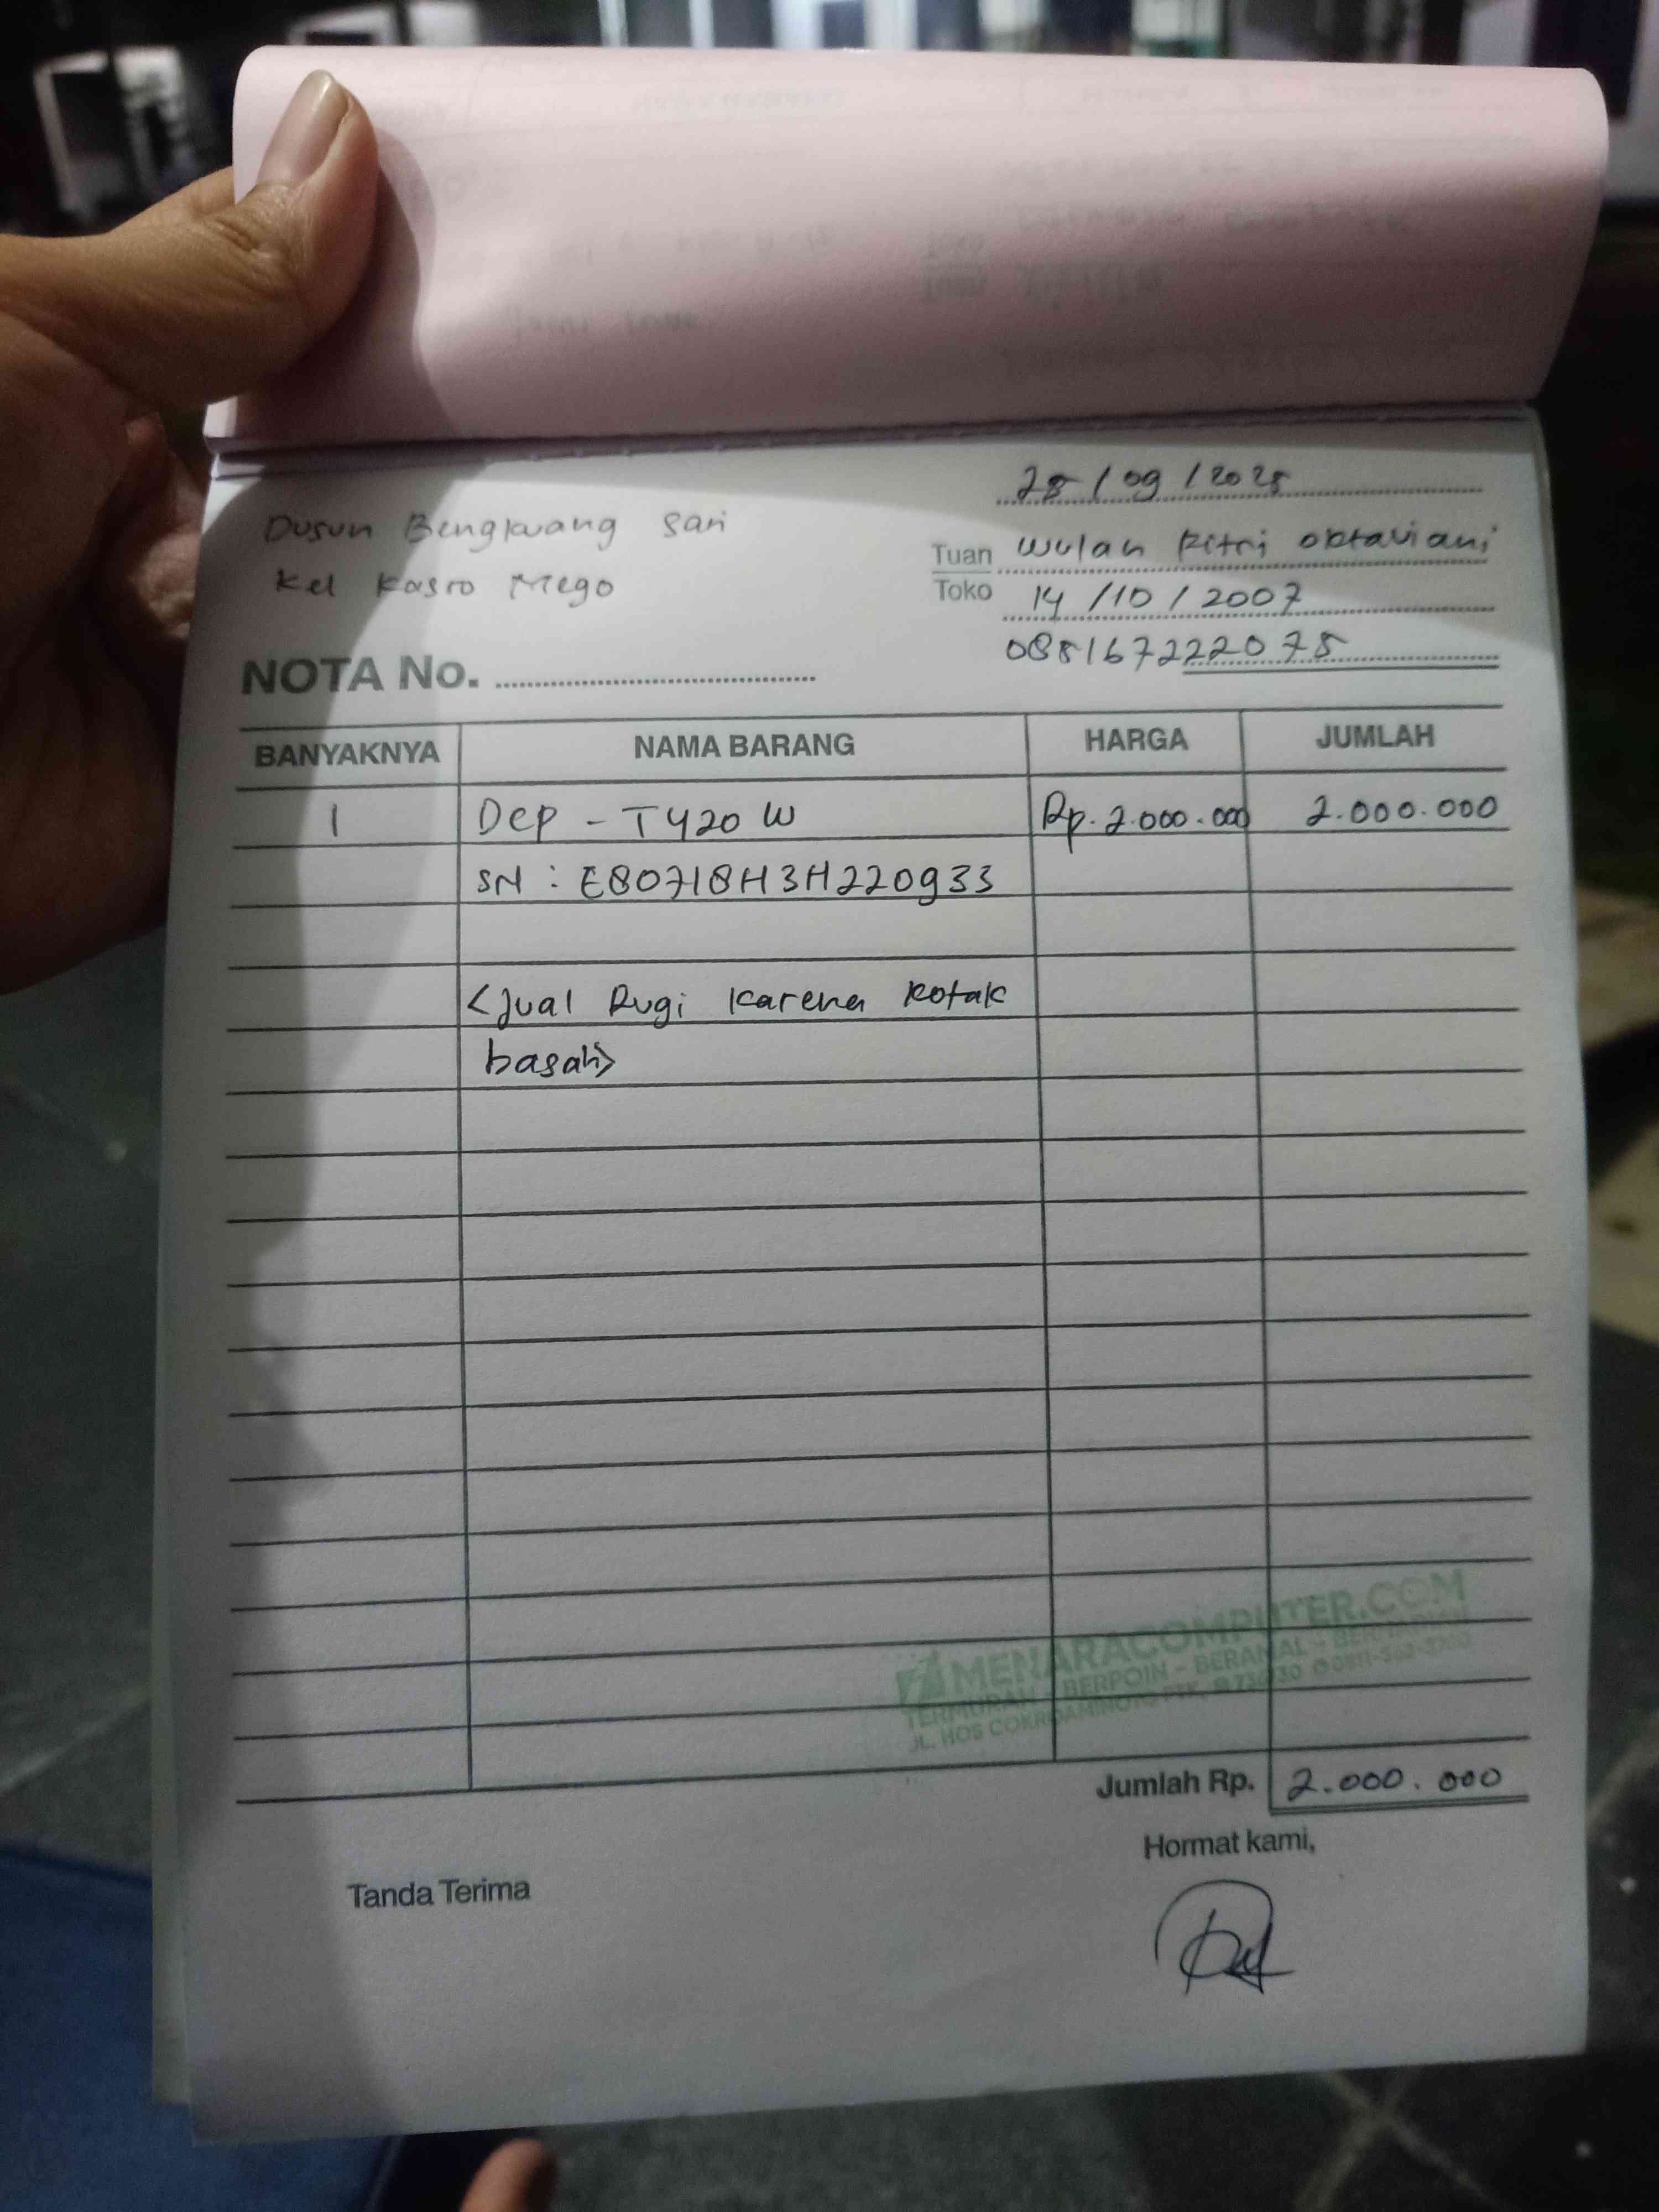 28/09/2025
Dusun Bengkuang Sari
Kel Kasro Mego
Tuan Wulan Fitri Oktaviani
Toko 14/10/2007
088167222075
NOTA No.
BANYAKNYA NAMA BARANG HARGA JUMLAH
1 Dcp - T420 W Rp. 2.000.000 2.000.000
SN : E80718H3H220933
<Jual Rugi Karena Kotak
basah>
MENARACOMPUTER.COM
TERMURAH - BERPOIN - BERAMAL -
JL. HOS COKROAMINOTO PTK,
Jumlah Rp. 2.000.000
Hormat kami,
Tanda Terima